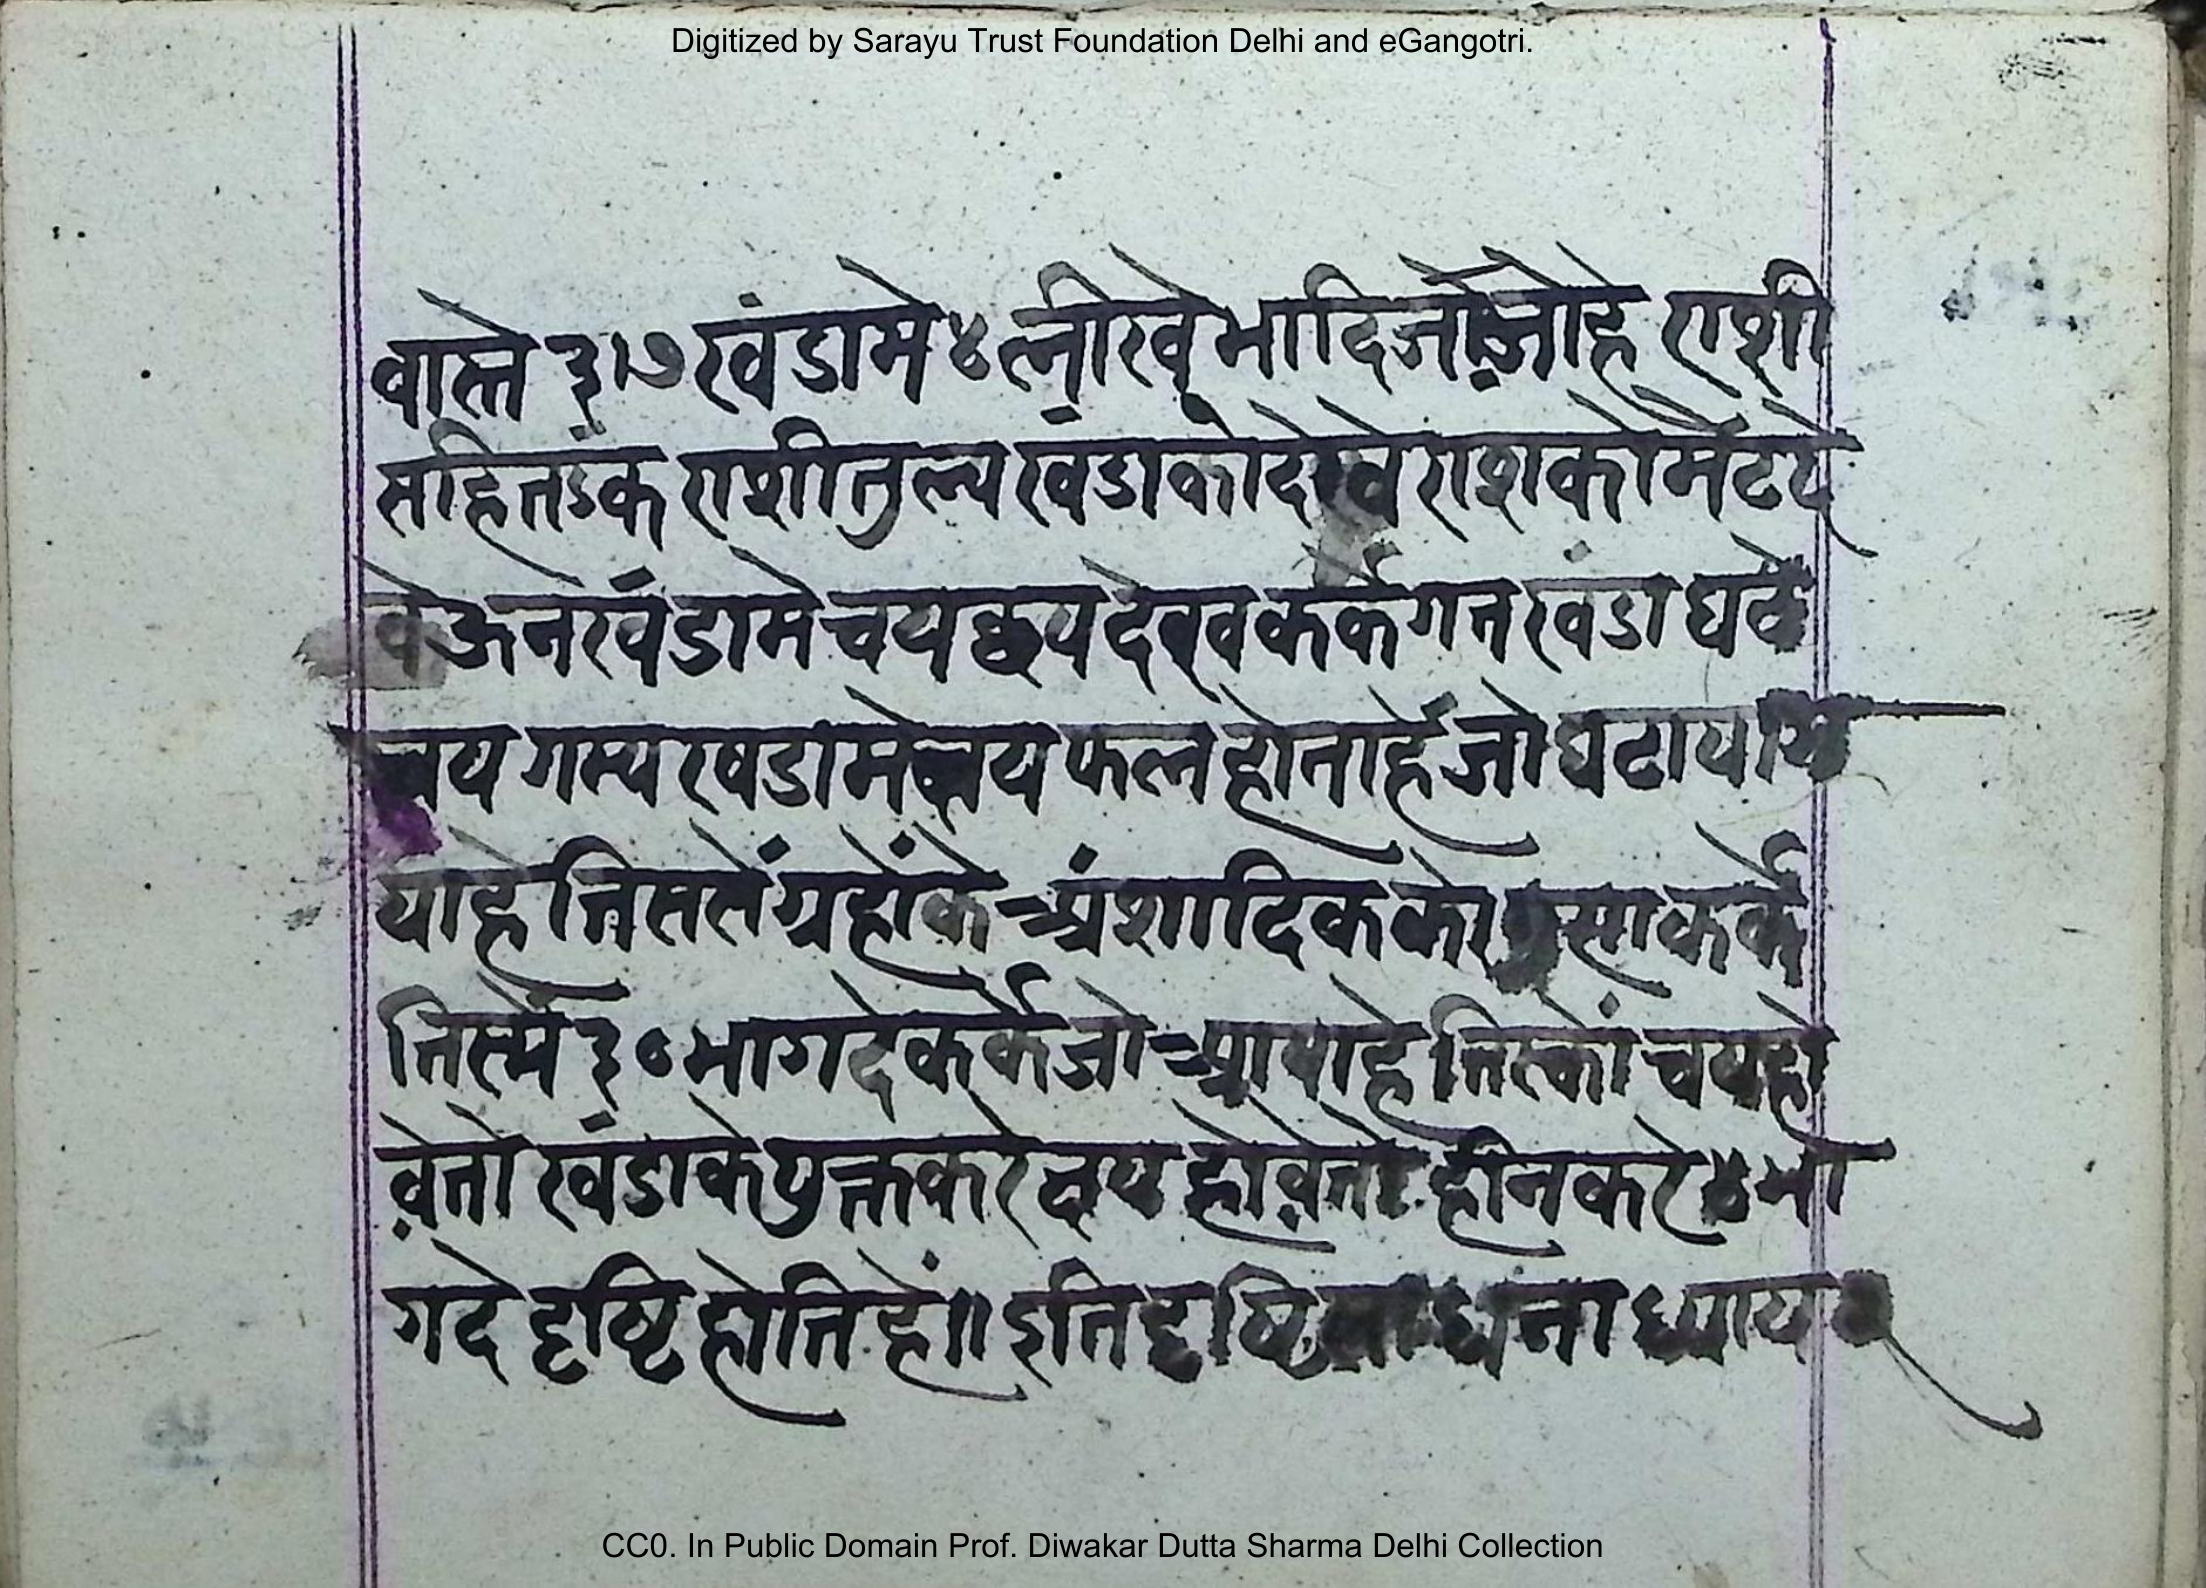 Digitized by Sarayu Trust Foundation Delhi and eGangotri.
वास्ते ३।७ खंडामे ४ लीखे भादि जो जोहे राशी
सहितऽंक राशीतुल्य खंडाको देखे राशको मेटदे
वे ऊन खंडामे चयक्षय देख्व कर्के गत खंडा घटे
चय गम्य खंडामे क्षय फल होताहै जो घटाया
याहे तिससें ग्रहोंके अंशादिक को कर्के
तिस्मे ३० भाग देकर्के जो आयाहे तिस्कों चय हो
वे तो खंडाके युक्त करे क्षय होवे तो हीन करे ४ भा
ग दे दृष्टि होति हें॥ इति दृष्टि ध्याय
CC0. In Public Domain Prof. Diwakar Dutta Sharma Delhi Collection